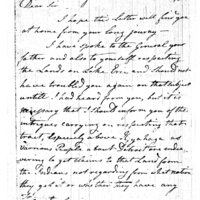 Dear Sir
I hope this letter will find you
at home from your long journey —
I have spoke to the General your
father and also to yourself respecting
the Lands on Lake Erie, and should not
have troubled you again on that subject
untill I had heard from you, but it is
necessary that I should inform you of the
intrigues carrying on respecting that
tract, especialy above Cayahaga as
various People about Detroit are endea-
voring to get claims to that Land from
the Indians not regarding from what nation
they get it or whether they have any